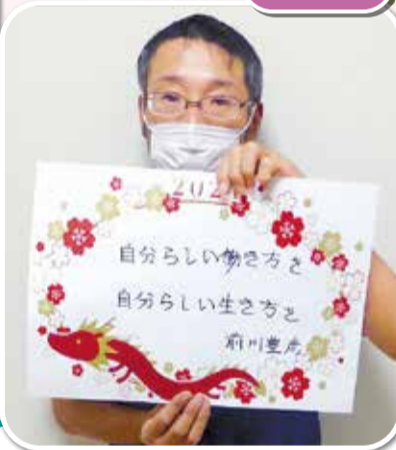 202
自分らしい働き方を
自分らしい生き方を
前川